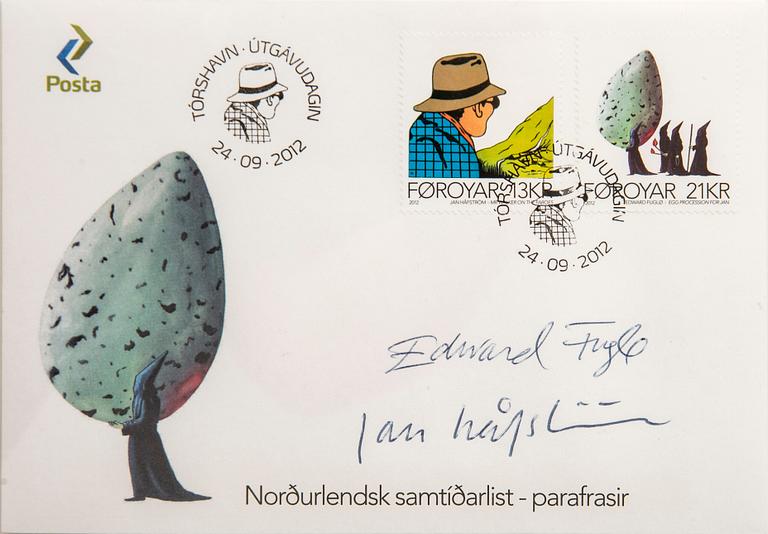 Posta
TÓRSHAVN · ÚTGÁVUDAGIN
24 · 09 · 2012
FØROYAR 13KR
2012 JAN HÅFSTRÖM - WALKER ON THE FAROES
FØROYAR 21KR
2012 EDWARD FUGLØ - EGG PROCESSION FOR JAN
TÓRSHAVN · ÚTGÁVUDAGIN
24 · 09 · 2012
Edward Fuglø
Jan Håfström
Norðurlendsk samtíðarlist - parafrasir